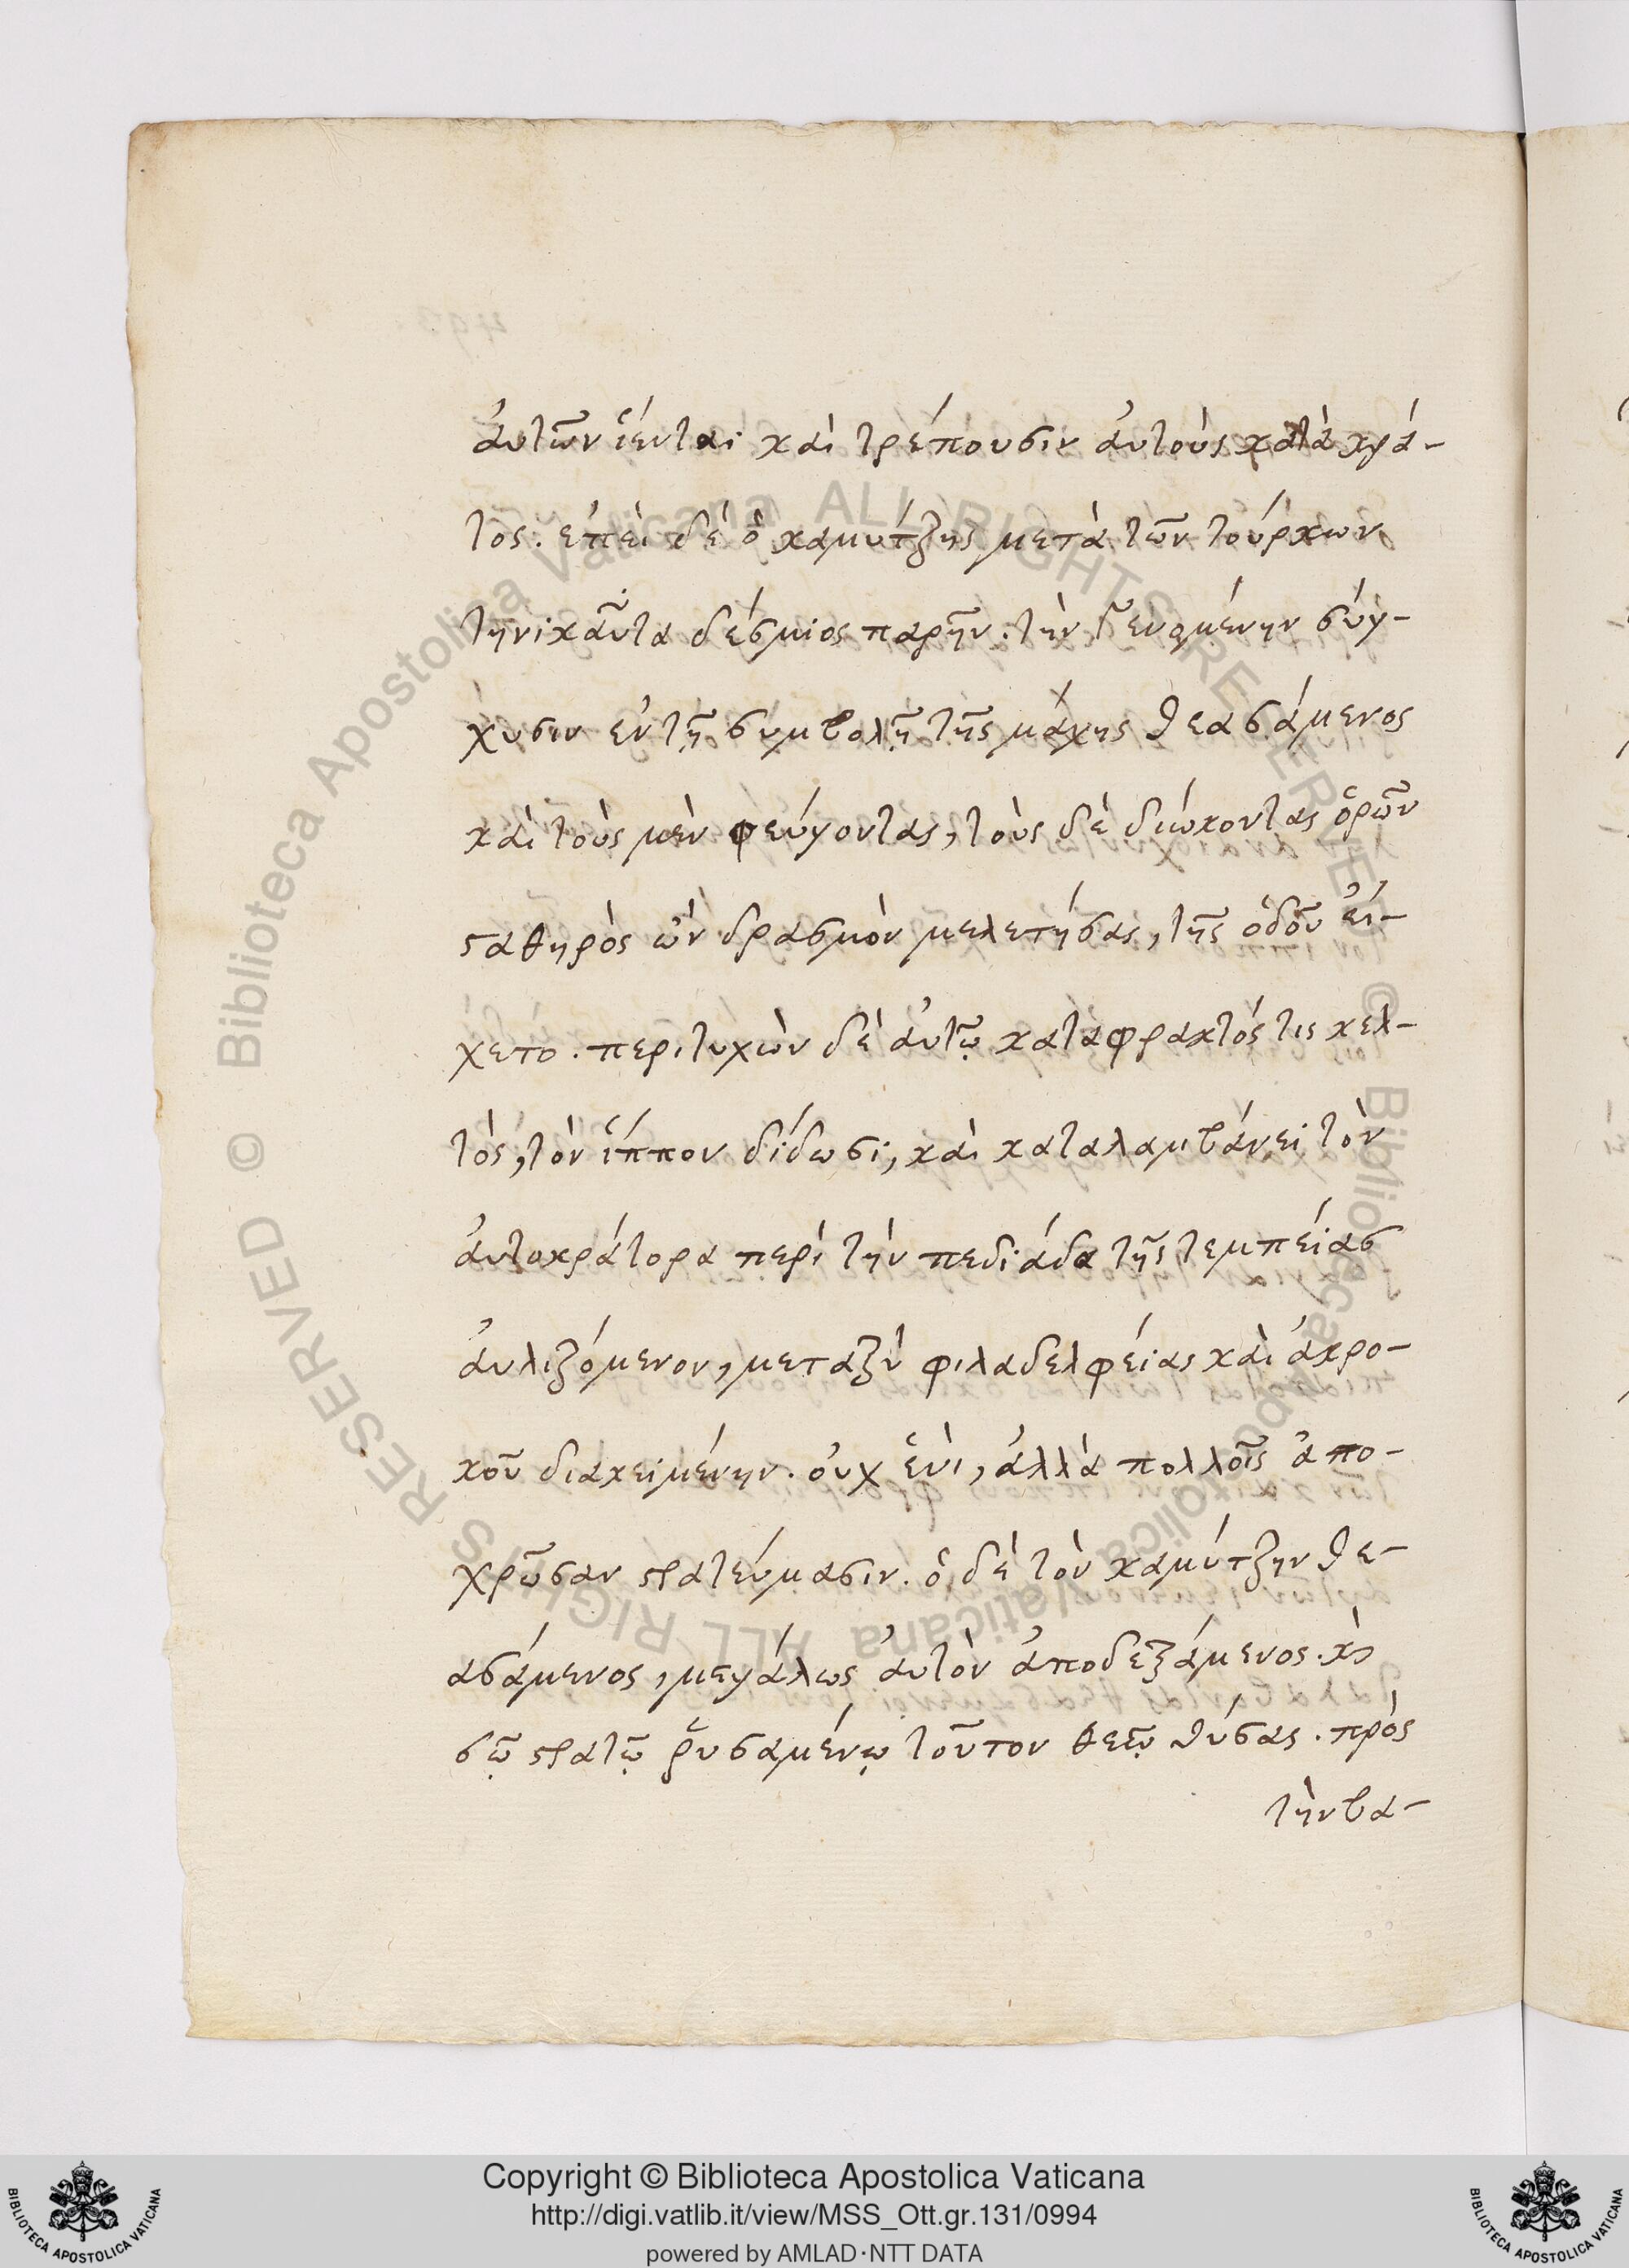 ἀυτῶν ἵενται καὶ τρέπουσιν ἀυτοὺς κατὰ κρά-
τος. ἐπεὶ δὲ ὁ καμύτζης μετὰ τῶν τούρκων
τηνικᾶυτα δέσμιος παρῆν. τὴν γενομένην σύγ-
χυσιν ἐν τῇ συμβολῇ τῆς μάχης θεασάμενος
καὶ τοὺς μὲν φεύγοντας, τοὺς δὲ διώκοντας ὁρῶν
σταθηρὸς ὢν δρασμὸν μελετήσας, τῆς ὁδοῦ ἐι-
χετο. περιτυχὼν δὲ ἀυτῷ καταφρακτός τις κελ-
τὸς, τὸν ἵππον δίδωσι, καὶ καταλαμβάνει τὸν
ἀυτοκράτορα περὶ τὴν πεδιάδα τῆς τεμπείας
ἀυλιζόμενον, μεταξὺ φιλαδελφείας καὶ ἀκρο-
κοῦ διακειμένην. ὀυχ ἑνὶ, ἀλλὰ πολλοῖς ἀπο-
χρῶσαν στρατεύμασιν. ὁ δὲ τὸν καμύτζην θε-
ασάμενος, μεγάλως ἀυτὸν ἀποδεξάμενος. κὶ
σῷ στρατῷ ῥυσαμένῳ τοῦτον θεῷ θύσας. πρὸς
τὴν βα-
Copyright © Biblioteca Apostolica Vaticana
http://digi.vatlib.it/view/MSS_Ott.gr.131/0994
powered by AMLAD·NTT DATA
© Biblioteca Apostolica Vaticana ALL RIGHTS RESERVED
© Biblioteca Apostolica Vaticana ALL RIGHTS RESERVED
BIBLIOTECA APOSTOLICA VATICANA
BIBLIOTECA APOSTOLICA VATICANA